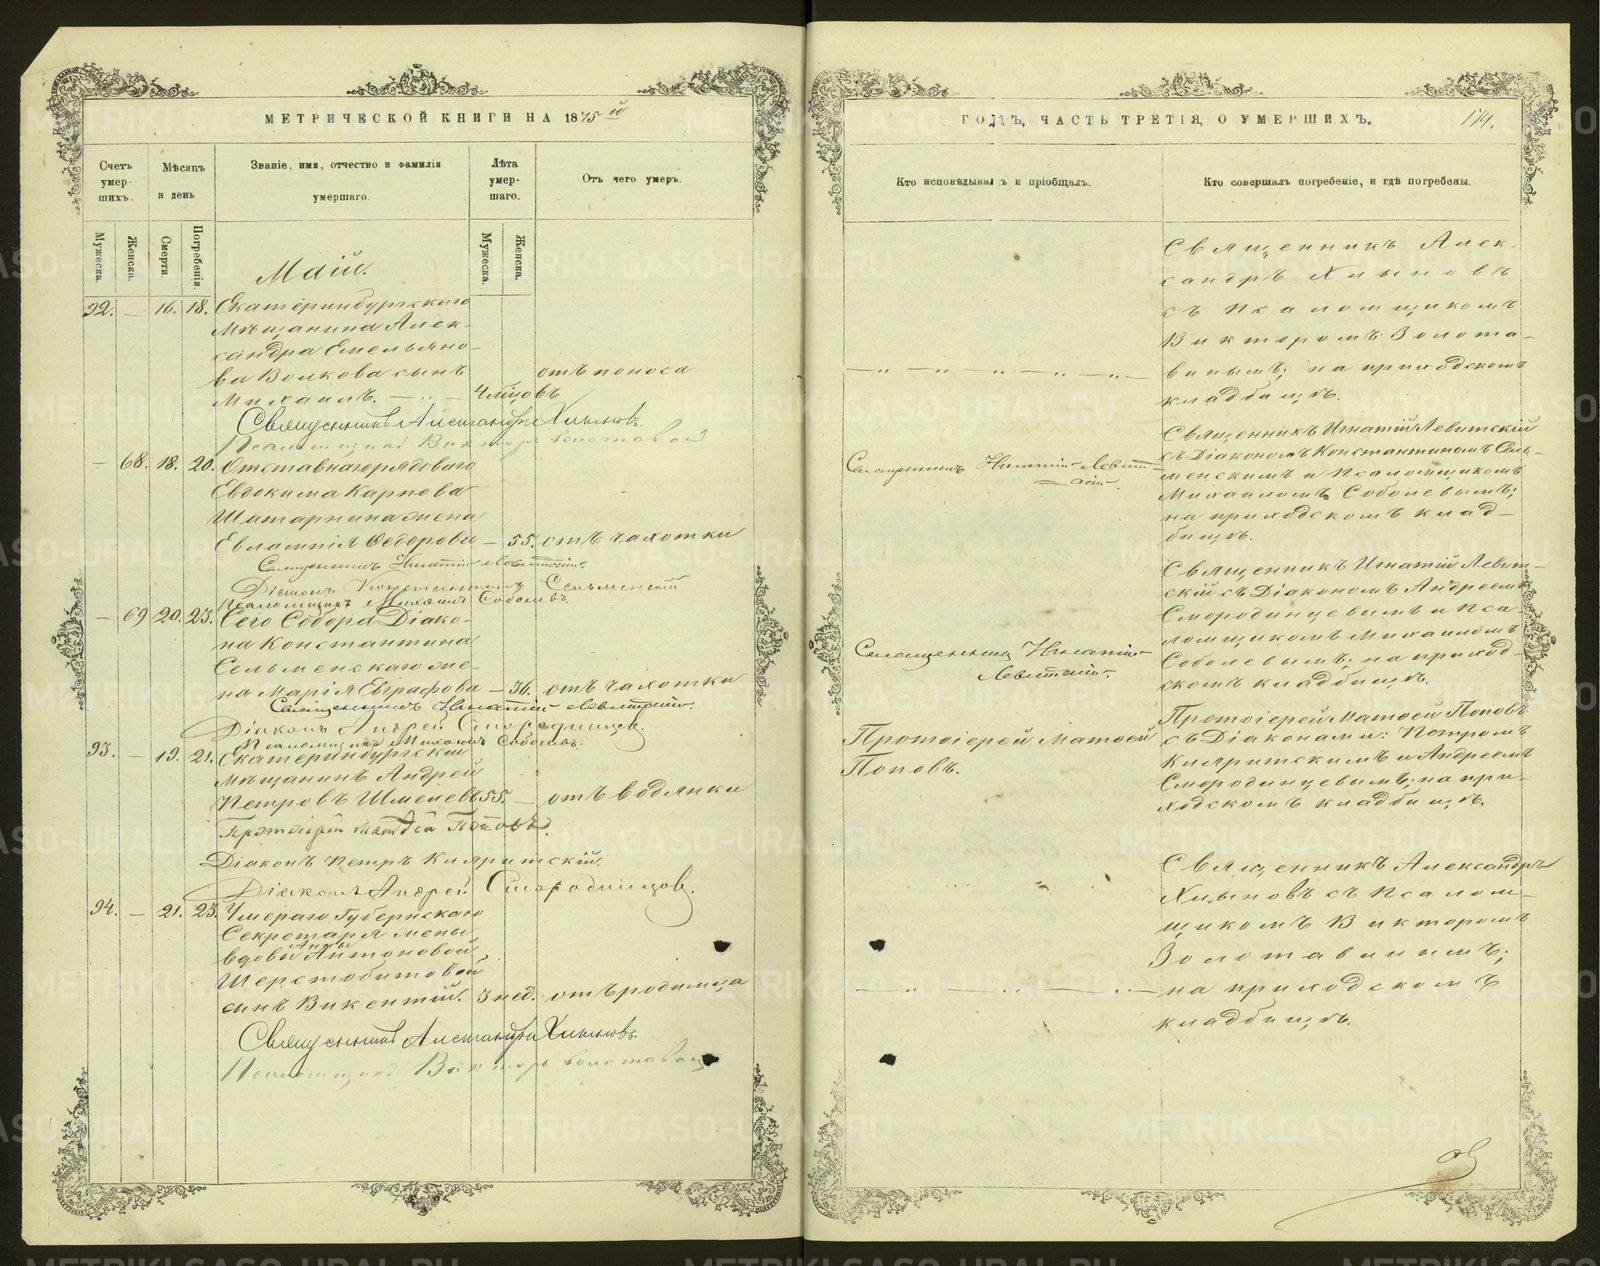 МЕТРИЧЕСКОЙ КНИГИ НА 1875й
Счетъ умер-шихъ.
Мѣсяцъ и день
Званіе, имя, отчество и фамилія умершаго.
Лѣта умер-шаго.
Отъ чего умеръ.
Мужеска. Женска. Смерти. Погребенія. Мужеска. Женска.
Маій.
92. — 16. 18. Екатеринбургскаго
мѣщанина Алек-
сандра Емельяно-
ва Волкова сынъ отъ поноса
Михаилъ. — 4 мѣсяцовъ
Священникъ Александръ Хлыновъ.
Псаломщикъ Викторъ Золотавинъ
— 68. 18. 20. Отставнаго рядоваго
Евдокима Карпова
жена
Евлампія Ѳедорова — 55. отъ чахотки
Священникъ Игнатій Левитскій.
Діаконъ Константинъ Сельменскій
Псаломщикъ Михаилъ Соболевъ.
— 69 20. 23. Сего Собора Діако-
на Константина
Сельменскаго же-
на Марія Евграфова — 36. отъ чахотки
Священникъ Игнатій Левитскій.
Діаконъ Андрей Смородинцовъ.
Псаломщикъ Михаилъ Соболевъ.
93. — 19. 21. Екатеринбургскій
мѣщанинъ Андрей
Петровъ Шмелевъ 55. — отъ водянки
Протоіерей Матѳей Поповъ.
Діаконъ Петръ
Діаконъ Андрей Смородинцовъ.
94. — 21. 23. Умераго Губернскаго
Секретаря жены
вдовы Анны Антоновой
Шерстобитовой
сынъ Викентій. 3 нед. отъ родимца
Священникъ Александръ Хлыновъ.
Псаломщикъ Викторъ Золотавинъ
ГОДЪ, ЧАСТЬ ТРЕТІЯ, О УМЕРШИХЪ.
174.
Кто исповѣдывалъ и пріобщалъ.
Кто совершалъ погребеніе, и гдѣ погребены.
Священникъ Алек-
сандръ Хлыновъ
съ Псаломщикомъ
Викторомъ Золота-
винымъ; на приходскомъ
кладбищѣ.
Священникъ Игнатій Левит-
скій.
Священникъ Игнатій Левитскій
съ Діакономъ Константиномъ Сель-
менскимъ и Псаломщикомъ
Михаиломъ Соболевымъ;
на приходскомъ клад-
бищѣ.
Священникъ Игнатій
Левитскій.
Священникъ Игнатій Левит-
скій съ Діакономъ Андреемъ
Смородинцевымъ и Пса-
ломщикомъ Михаиломъ
Соболевымъ; на приход-
скомъ кладбищѣ.
Протоіерей Матѳей
Поповъ.
Протоіерей Матѳей Поповъ
съ Діаконами: Петромъ
и Андреемъ
Смородинцевымъ; на при-
ходскомъ кладбищѣ.
Священникъ Александръ
Хлыновъ съ Псалом-
щикомъ Викторомъ
Золотавинымъ;
на приходскомъ
кладбищѣ.
METRIKI.GASO-URAL.RU